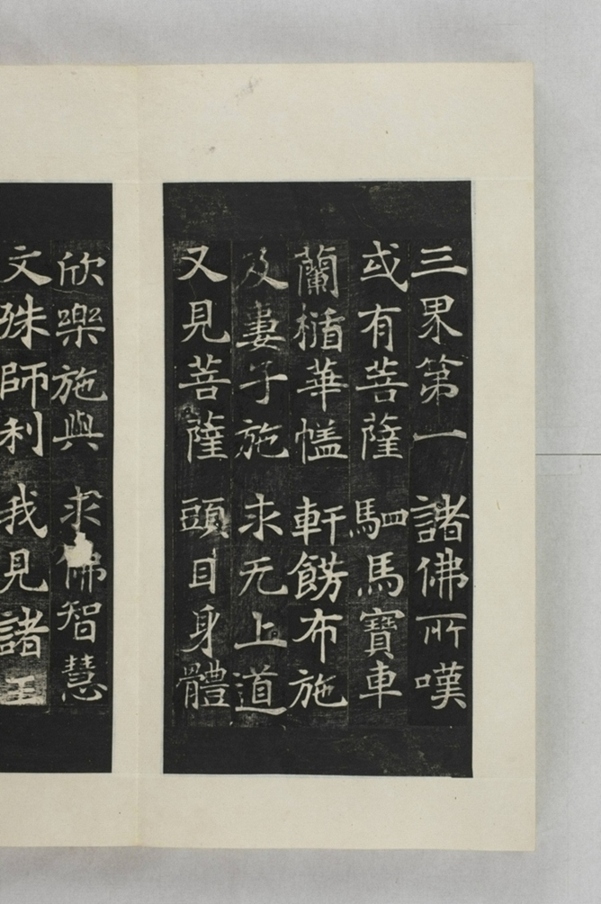 三界第一 諸佛所嘆
或有菩薩 駟馬寶車
蘭楯華盖 軒餝布施
及妻子施 求无上道
又見菩薩 頭目身體
欣樂施與 求佛智慧
文殊師利 我見諸王